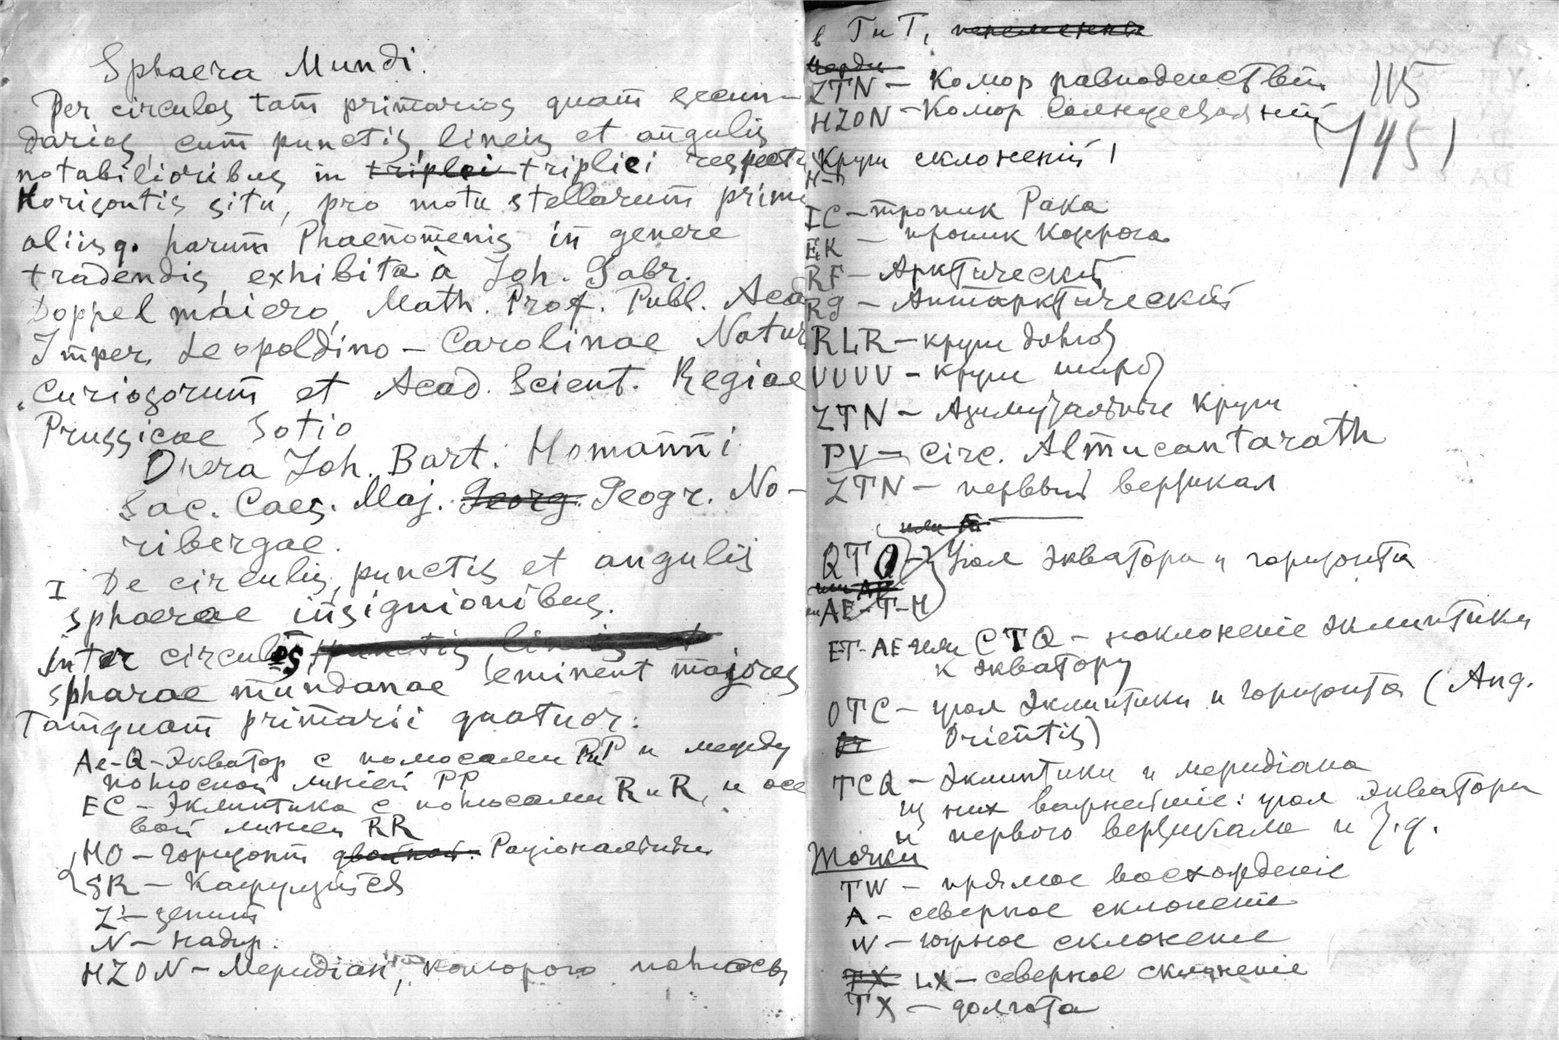 Sphaera Mundi.
Per circulos tam primarios quam secun-
darios cum punctis lineis et angulis
notabilioribus in triplici triplici respectu
Horizontis situ, pro motu stellarum primo
aliisq. harum Phaenomenis in genere
tradendis exhibita à Joh. Gabr.
Doppelmaiero, Math. Prof. Publ. Acad
Imper. Leopoldino – Carolinae Natur
Curiosorum et Acad. Scient. Regiae
Prussicae Sotio
Opera Joh. Bart. Homanni
Sac. Caes. Maj. Georg. Geogr. No-
ribergae.
I De circulis, punctis et angulis
sphaerae insignioribus.
Inter circulos punctis lineis et
spharae mundanae eminent majores
Tamquam primarii quatuor:
Ae-Q-Экватор с полюсами P и P и между
полюсной линией PP
EC – Эклиптика с полюсами R и R, и осе
вой линией RR
HO – горизонт двойной. Раціональный
SR –
Z – зенит
N – надир.
HZON – Меридіан, которого полюсы
в T и T,
ZTN – Колюр равноденствій 115
HZON – Колюр Солнцестояній (145)
Круги склоненій
IC – тропик Рака
EK – тропик Козерога
RF – Арктическій
Rg – Антарктическій
RLR – круги долгот
VUVV – круги широт
ZTN – Азимутальные круги
PV – Circ. Almucantarath
ZTN – первый вертикал
или
QTO – Угол Экватора и горизонта
или AE
AE-T-H
ET-AE или CTQ – наклоненіе эклиптики
к экватору
OTC – угол Эклиптики и горизонта (Ang.
Orientis)
TCQ – Эклиптики и меридіана
из них важнейшіе: угол экватора
и первого вертикала и т.д.
Точки
TW – прямое восхожденіе
A – северное склоненіе
W – южное склоненіе
TX LX – северное склоненіе
TX – долгота